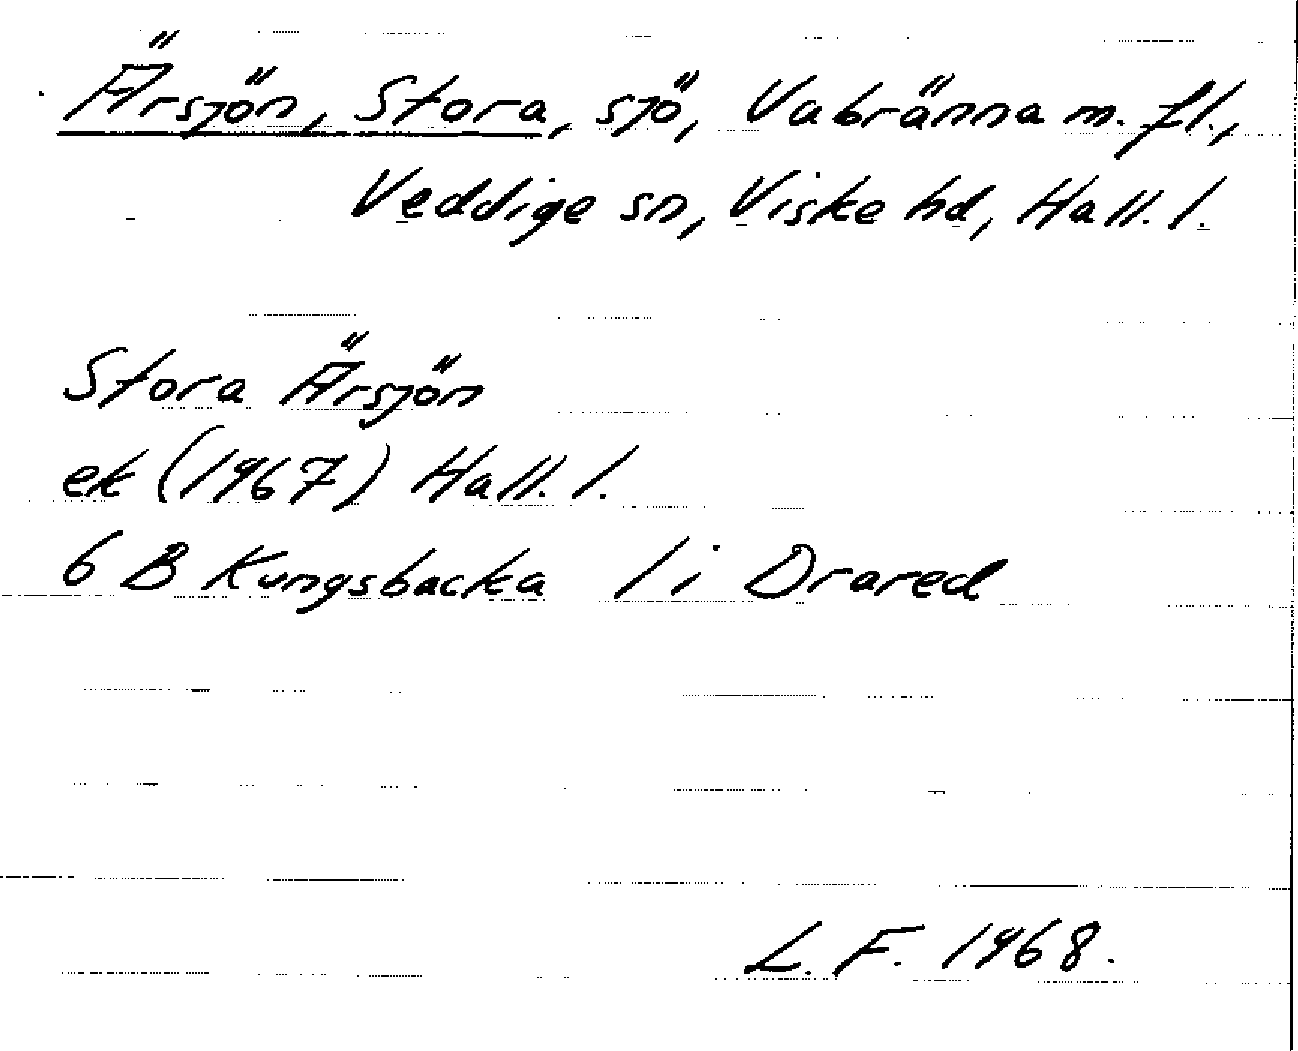 Ärsjön, Stora, sjö, Vabränna m. fl.,
Veddige sn, Viske hd, Hall. l.
Stora Ärsjön
ek (1967) Hall. l.
6 B Kungsbacka 1 i Drared
L. F. 1968.